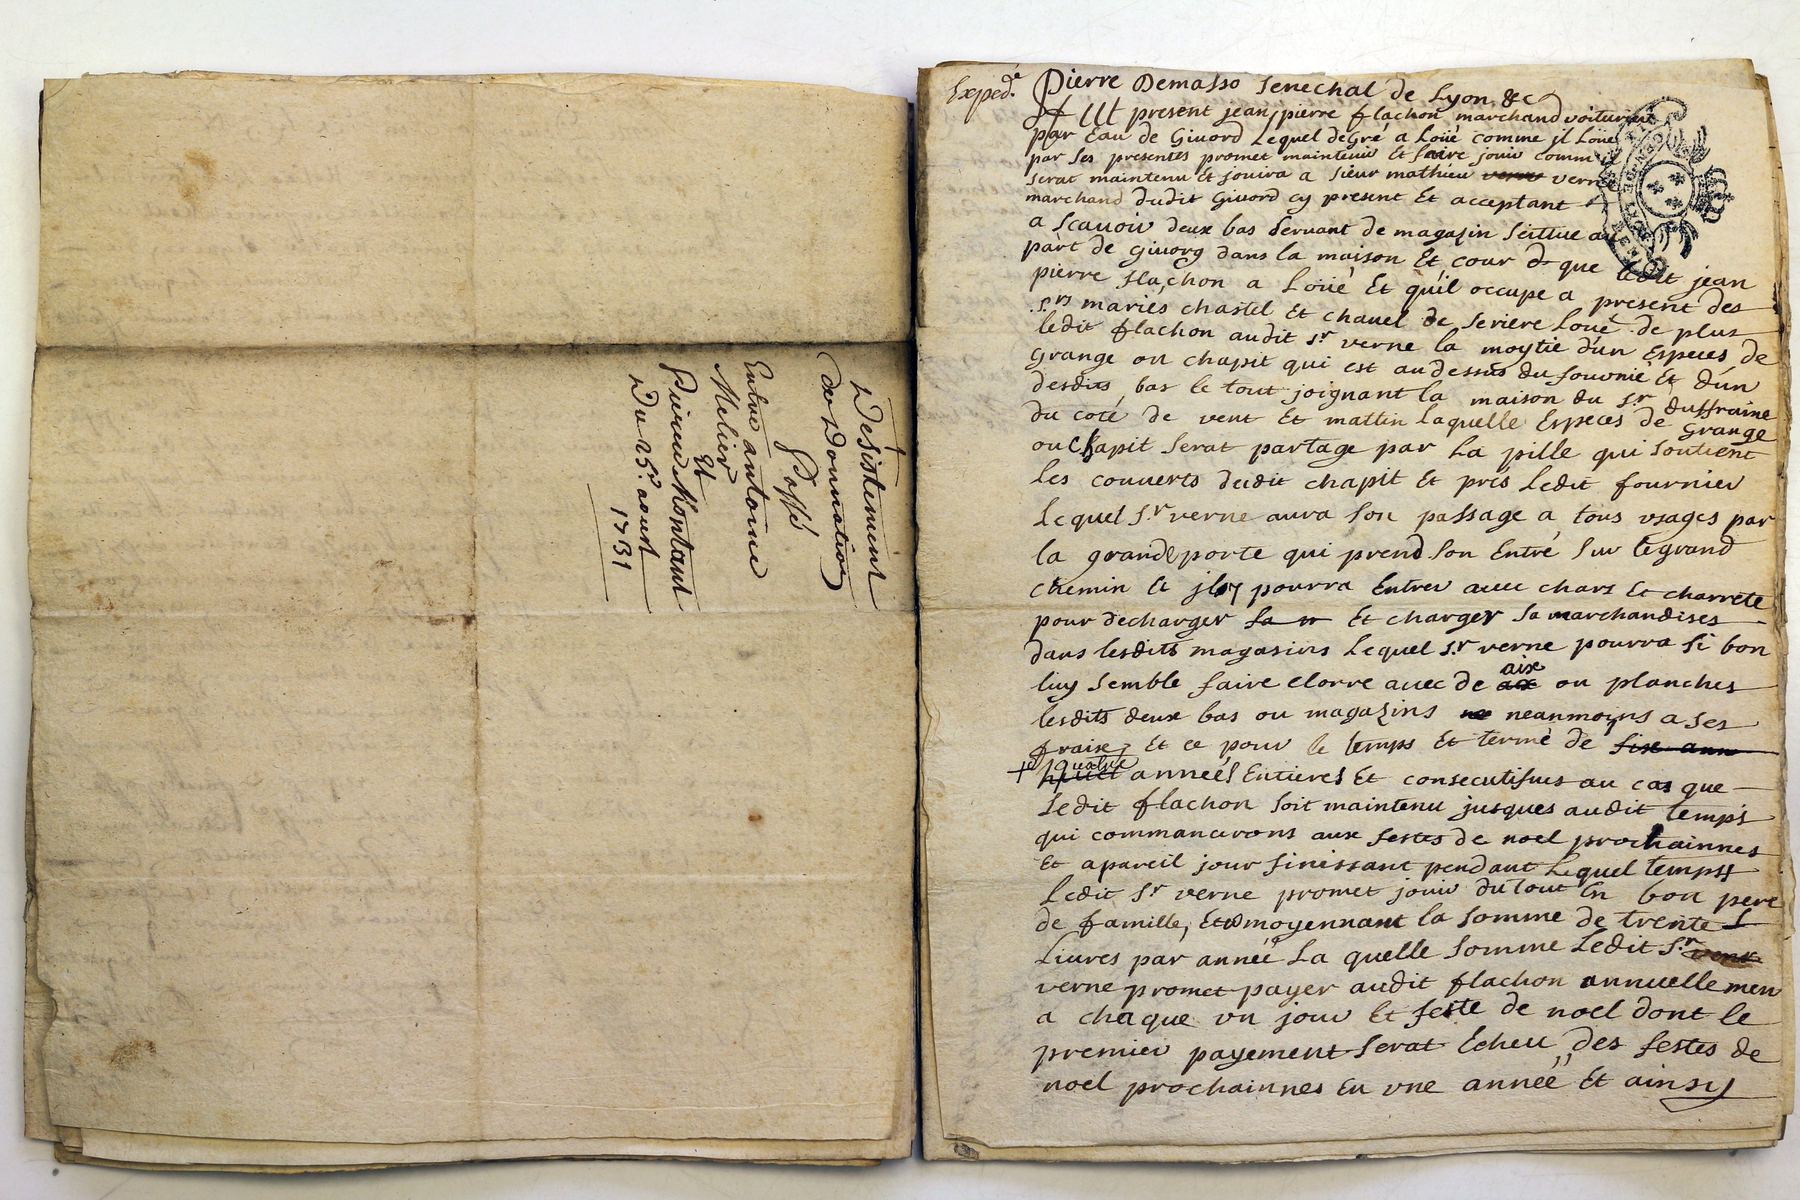 Desistement
de Donnation
Passé
Entre antoine
Melier
Et
Pierre Montant
Du 25e aoust
1731
Exped.é Pierre Demasso Senechal de Lyon &c
present jean pierre flachon marchand voiturier
par Eau de Givord Lequel de Gré a Loüé comme jl Loüe
par ses presentes promet maintenir Et faire jouir comm jl
serat maintenu Et jouira a sieur mathieu verne
marchand dudit Givord cy present Et acceptant
a scavoir deux bas servant de magazin scittue au
part de Givorg dans la maison Et cour d que ledit jean
pierre flachon a Loüé Et qu'il occupe a present des
srs mariés chastel Et chavel de Seriere Loué de plus
ledit flachon audit sr verne la moytié d'un Especes de
Grange ou chapit qui est au dessus du fournié Et d'un
desdits bas le tout joignant la maison du sr duffraine
du coté de vent Et mattin laquelle Especes de Grange
ou chapit serat partage par La pille qui soutient
les couverts dudit chapit Et prés Ledit fournier
Lequel sr verne aura son passage a tous usages par
la grande porte qui prend son Entré sur le grand
chemin Et jl y pourra Entrer avec chars Et charrete
pour decharger sa m Et charger sa marchandises
dans lesdits magasins Lequel sr verne pourra si bon
luy semble faire clorre avec de aix ou planches
lesdits deux bas ou magazins neanmoyns a ses
fraix, Et ce pour le temps Et termé de six ann
+ quatre années Entieres Et consecutifves au cas que
Ledit flachon soit maintenu jusques audit temps
qui commancerons aux festes de noel prochainnes
Et a pareil jour finissant pendant Lequel temps
Ledit sr verne promet jouir du tout En bon pere
de famille, Et moyennant la somme de trente
Livres par année La quelle somme Ledit sr
verne promet payer audit flachon annuellemen
a chaque un jour Et feste de noel dont le
premier payement serat Echeu des festes de
noel prochainnes En une année Et ainsy